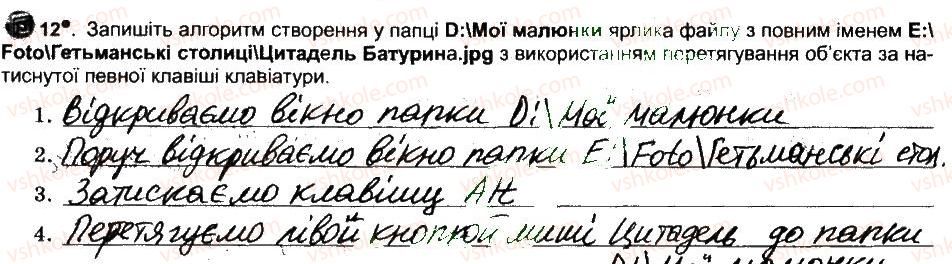 12°. Запишіть алгоритм створення у папці D:\Мої малюнки ярлика файлу з повним іменем E:\
Foto\Гетьманські столиці\Цитадель Батурина.jpg з використанням перетягування об'єкта за на-
тиснутої певної клавіші клавіатури.
1. Відкриваємо вікно папки D:\Мої малюнки
2. Поруч відкриваємо вікно папки E:\Foto\Гетьманські стол.
3. Затискаємо клавішу Alt
4. Перетягуємо лівой кнопкой миші Цитадель до папки
D:\Мої малюнки